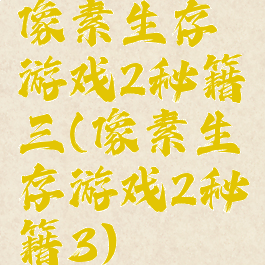 像素生存
游戏2秘籍
三(像素生
存游戏2秘
籍3)